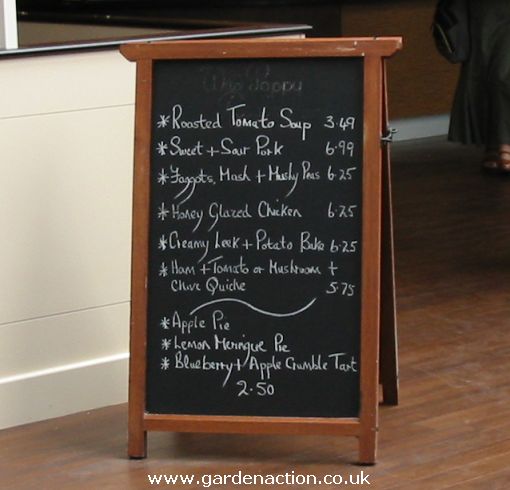 * Roasted Tomato Soup 3.49
* Sweet + Sour Pork 6.99
* Faggots, Mash + Mushy Peas 6.25
* Honey Glazed Chicken 6.25
* Creamy Leek + Potato Bake 6.25
* Ham + Tomato or Mushroom +
Chive Quiche 5.75
* Apple Pie
* Lemon Meringue Pie
* Blueberry + Apple Crumble Tart
2.50
www.gardenaction.co.uk